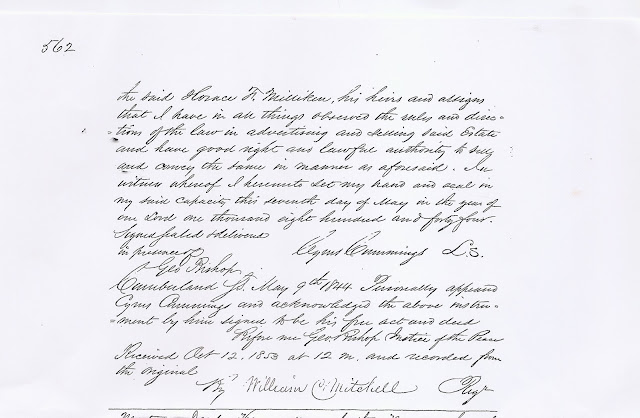 562
the said Horace F. Milliken, his heirs and assigns
that I have in all things observed the rules and direc=
=tions of the law in advertising and selling said Estate
and have good right and lawful authority to sell
and convey the same in manner as aforesaid. In
witness whereof I hereunto set my hand and seal in
my said capacity this seventh day of May in the year of
our Lord one thousand eight hundred and forty four.
Signed sealed & delivered
in presence of Cyrus Cummings L.S.
Geo Bishop
Cumberland Ss. May 9th 1844 Personally appeared
Cyrus Cummings and acknowledged the above instru=
=ment by him signed to be his free act and deed
Before me Geo Bishop Justice of the Peace
Received Oct 12, 1853 at 12 m. and recorded from
the original
By William C. Mitchell Regr